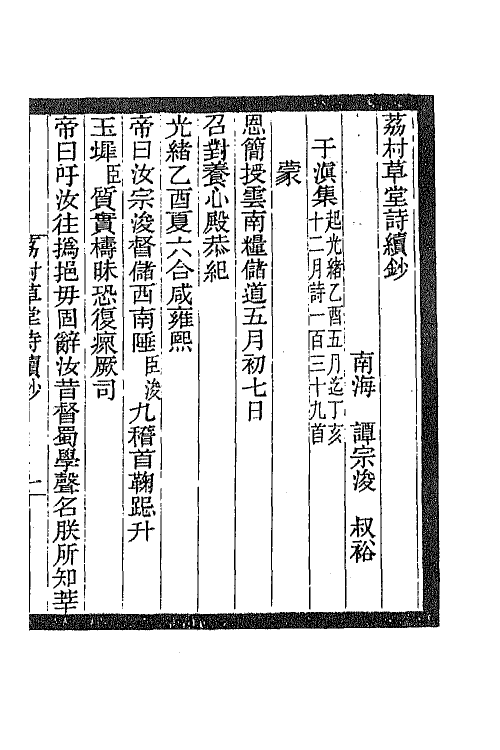 荔村草堂詩續鈔
南海　譚宗浚　叔裕
于滇集起光緒乙酉五月迄丁亥十二月詩一百三十九首
蒙
恩簡授雲南糧儲道五月初七日
召對養心殿恭紀
光緒乙酉夏六合咸雍熙
帝曰汝宗浚督儲西南陲臣浚九稽首鞠跽升
玉墀臣質實檮昧恐復瘝厥司
帝曰吁汝往撝挹毋固辭汝昔督蜀學聲名朕所知莘
荔村草堂詩續鈔
一